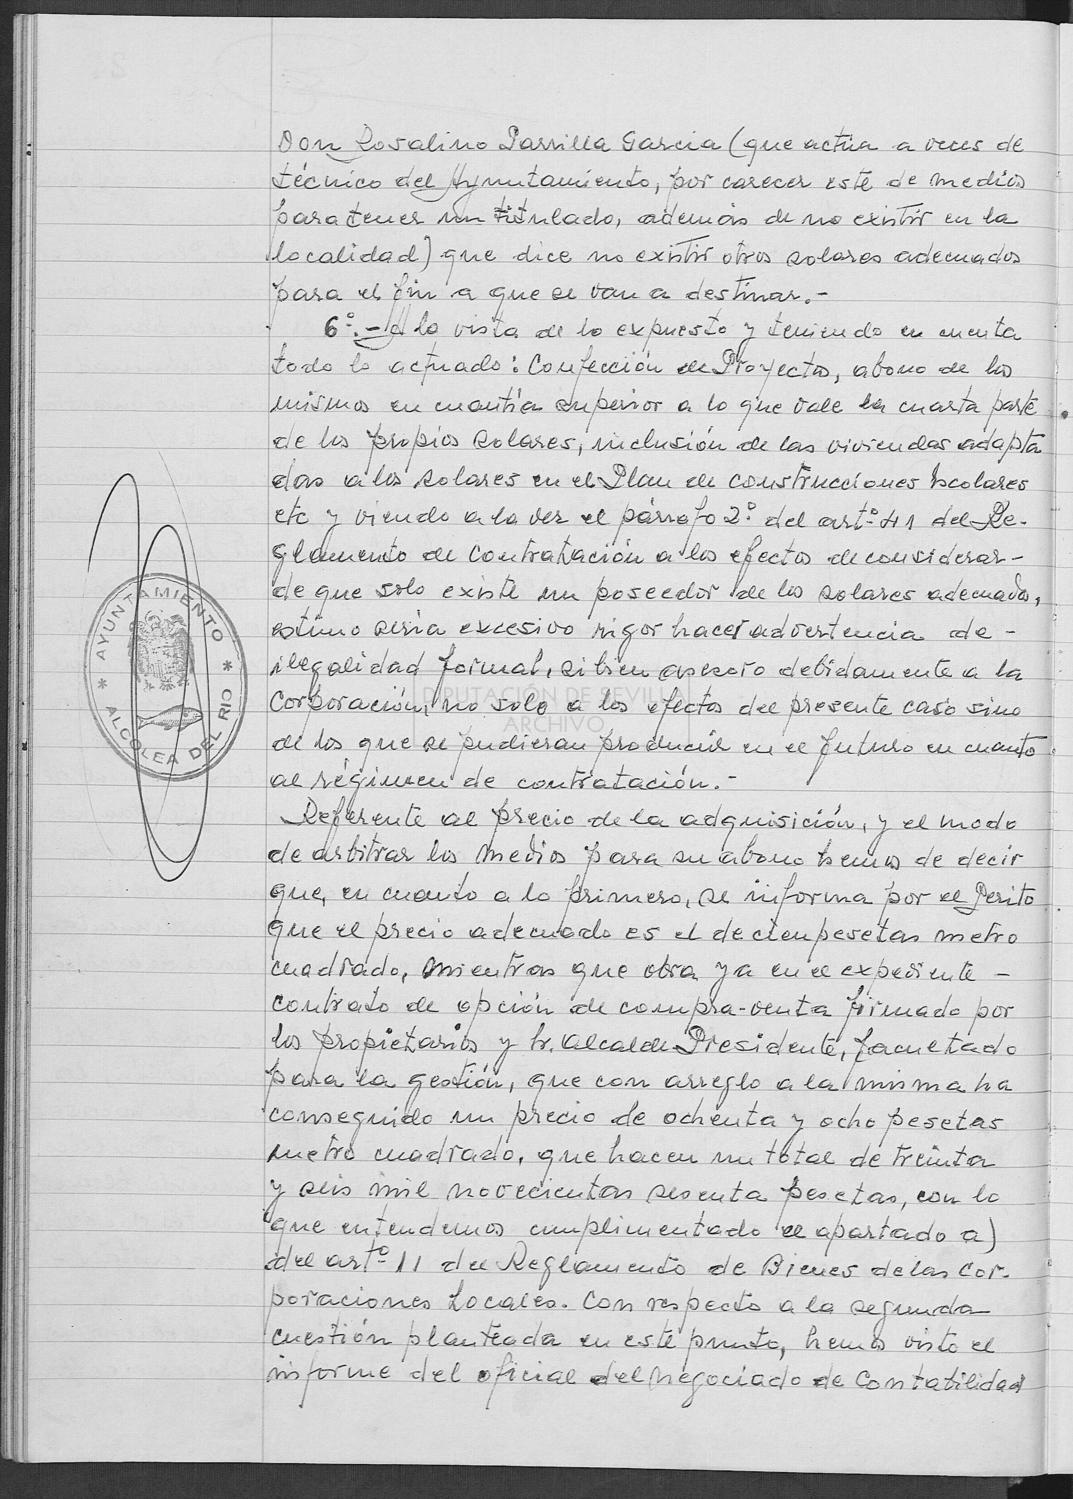 Don Rosalino Parrilla Garcia (que actúa a veces de
técnico del Ayuntamiento, por carecer este de medios
para tener un titulado, además de no existir en la
localidad) que dice no existir otros solares adecuados
para el fin a que se van a destinar.-
6º.- A la vista de lo expuesto y teniendo en cuenta
todo lo actuado: Confección de Proyectos, abono de los
mismos en cuantía superior a lo que vale la cuarta parte
de los propios solares, inclusión de las viviendas adapta
das a los solares en el Plan de construcciones Escolares
etc y viendo a la vez el párrafo 2º del artº 41 del Re-
glamento de Contratación a los efectos de considerar-
de que solo existe un poseedor de los solares adecuados,
estimo sería excesivo rigor hacer advertencia de -
ilegalidad formal, si bien asesoro debidamente a la
Corporación, no solo a los efectos del presente caso sino
de los que se pudieran producir en el futuro en cuanto
al régimen de contratación.-
Referente al precio de la adquisición, y el modo
de arbitrar los medios para su abono hemos de decir
que, en cuanto a lo primero, se informa por el Perito
que el precio adecuado es el de cien pesetas metro
cuadrado, mientras que obra ya en el expediente -
contrato de opción de compra-venta firmado por
los propietarios y Sr. Alcalde Presidente, facultado
para la gestión, que con arreglo a la misma ha
conseguido un precio de ochenta y ocho pesetas
metro cuadrado, que hacen un total de treinta
y seis mil novecientas sesenta pesetas, con lo
que entendemos cumplimentado el apartado a)
del artº 11 del Reglamento de Bienes de las Cor-
poraciones Locales. Con respecto a la segunda
cuestión planteada en este punto, hemos visto el
informe del oficial del negociado de Contabilidad
AYUNTAMIENTO
* ALCOLEA DEL RIO *
DIPUTACIÓN DE SEVILLA
ARCHIVO